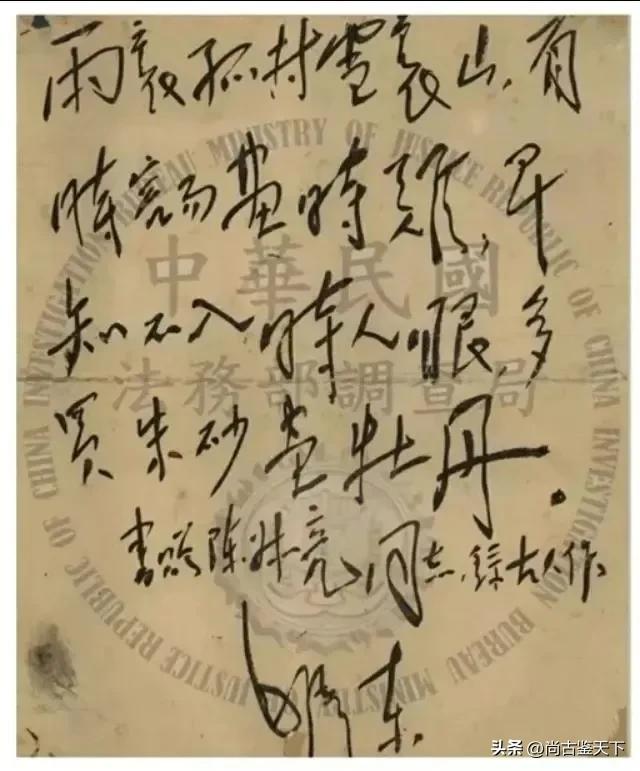 雨裏孤村雪裏山,看
時容易畫時難,早
知不入時人眼,多
買朱砂畫牡丹。
書贈陳亮同志,錄古人作
毛澤東
中華民國
法務部調查局
INVESTIGATION BUREAU MINISTRY OF JUSTICE REPUBLIC OF CHINA INVESTIGATION BUREAU MINISTRY OF JUSTICE REPUBLIC OF CHINA
头条 @尚古鉴天下